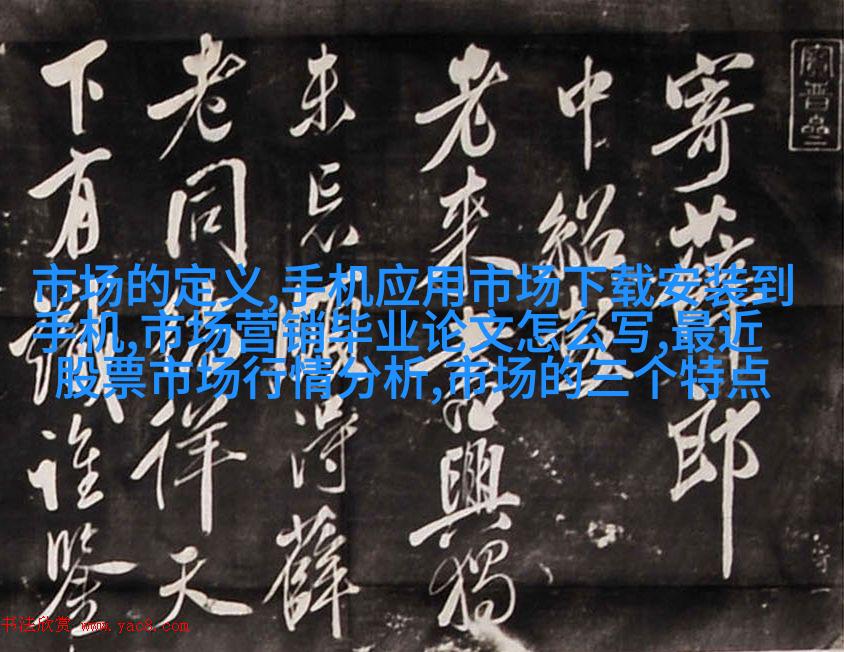 寄薛郎
中紹彭
老来書興獨
未忘頗得薛
老同徜徉天
下有識誰鑒
市场的定义,手机应用市场下载安装到
手机,市场营销毕业论文怎么写,最近
股票市场行情分析,市场的三个特点
书法欣赏 www.yac8.com